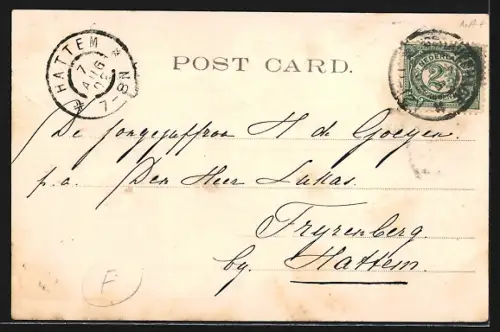 HATTEM
7 AUG 05
7-8N
POST CARD.
NEDERLAND
2½
De Jongejuffrou H de Goeyen.
p.a. Den Heer Lukas.
Fryrenberg
by. Hattem.
F